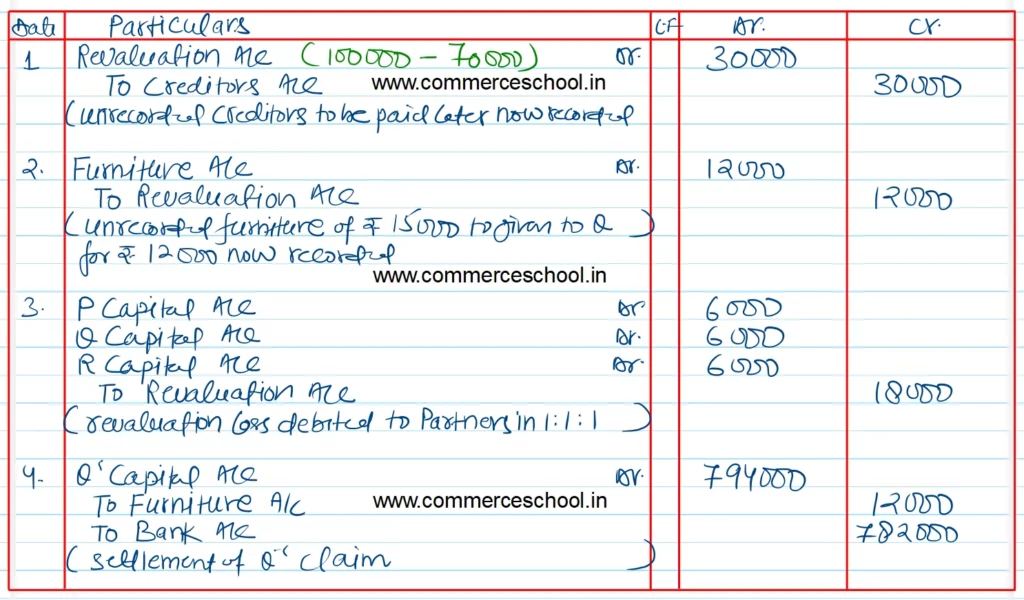 Date Particulars LF Dr. Cr.
1 Revaluation A/c (100000 - 70000) Dr. 30000
To Creditors A/c www.commerceschool.in 30000
(unrecorded creditors to be paid later now recorded
2. Furniture A/c Dr. 12000
To Revaluation A/c 12000
(unrecorded furniture of ₹ 15000 to given to Q )
for ₹ 12000 now recorded
www.commerceschool.in
3. P Capital A/c Dr 6000
Q Capital A/c Dr. 6000
R Capital A/c Dr. 6000
To Revaluation A/c 18000
(revaluation loss debited to Partners in 1:1:1 )
4. Q' Capital A/c Dr. 794000
To Furniture A/c www.commerceschool.in 12000
To Bank A/c 782000
(settlement of Q' claim )